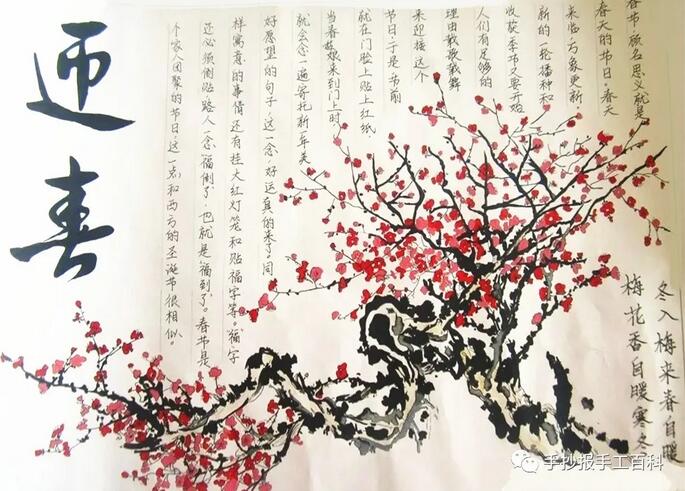 迎春
春节,顾名思义就是
春天的节日。春天
来临,万象更新,
新的一轮播种和
收获季节又要开始。
人们有足够的
理由载歌载舞
来迎接这个
节日。于是,节前
就在门脸上贴上红纸
当春姑娘来到门上时,
就会念一遍寄托新一年美
好愿望的句子,这一念,好运真的来了。同
样寓意的事情还有挂大红灯笼和贴福字等。福字
还必须倒贴,路人一念福倒了,也就是福到了。春节是
个家人团聚的节日,这一点和西方的圣诞节很相似。
冬入梅来春自暖
梅花香自暖寒冬
手抄报手工百科